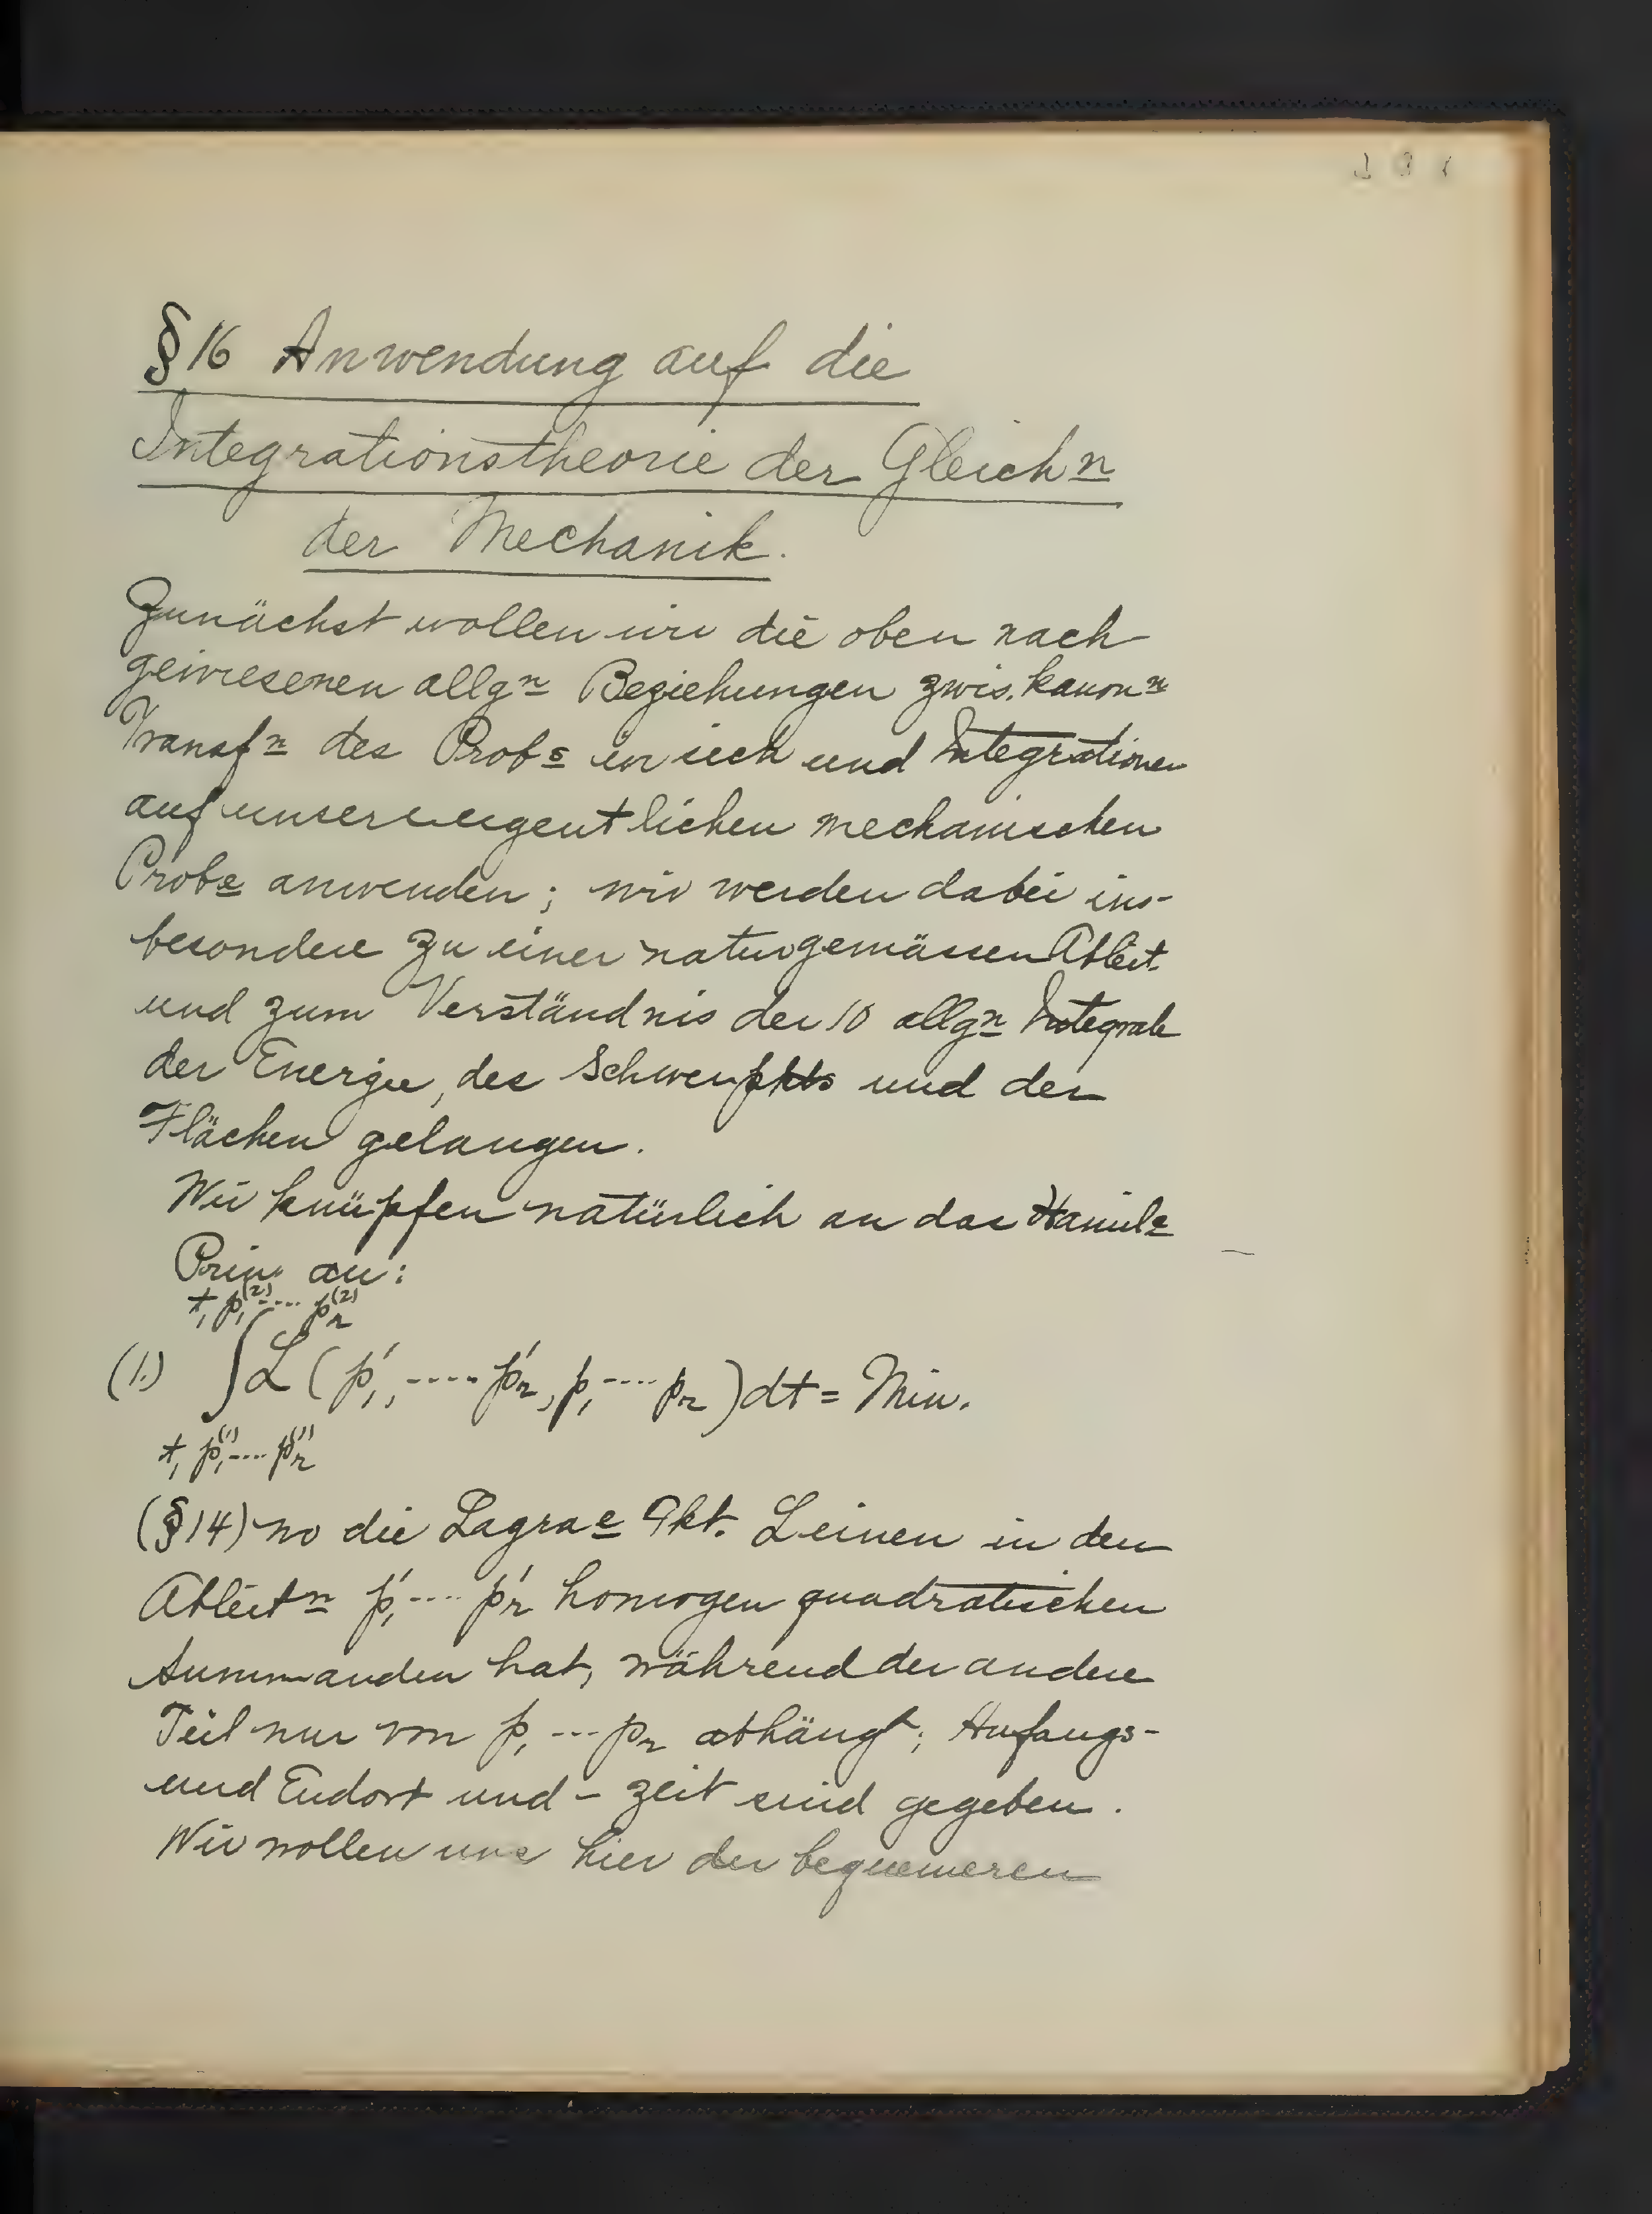 §16 Anwendung auf die
Integrationstheorie der Gleichn
der Mechanik.
Zunächst wollen wir die oben nach-
gewiesenen allgn Beziehungen zwis. kanonn
Transfn des Probs in sich und Integrationen
auf unsere eigentlichen mechanischen
Probe anwenden; wir werden dabei ins-
besondere zu einer naturgemässen Ableit.
und zum Verständnis der 10 allgn Integrale
der Energie, des Schwerpkts und der
Flächen gelangen.
Wir knüpfen natürlich an das Hamile
Prin. an:
t, p₁⁽²⁾ .... pᵣ⁽²⁾
(1.) ∫ L (p₁', ..... pᵣ', p₁ .... pᵣ) dt = Min.
t, p₁⁽¹⁾ .... pᵣ⁽¹⁾
(§14) wo die Lagrae Fkt. L einen in den
Ableitn p₁', .... pᵣ' homogen quadratischen
Summanden hat, während der andere
Teil nur von p₁ ... pᵣ abhängt; Anfangs-
und Endort und - zeit sind gegeben.
Wir wollen uns hier der bequemeren